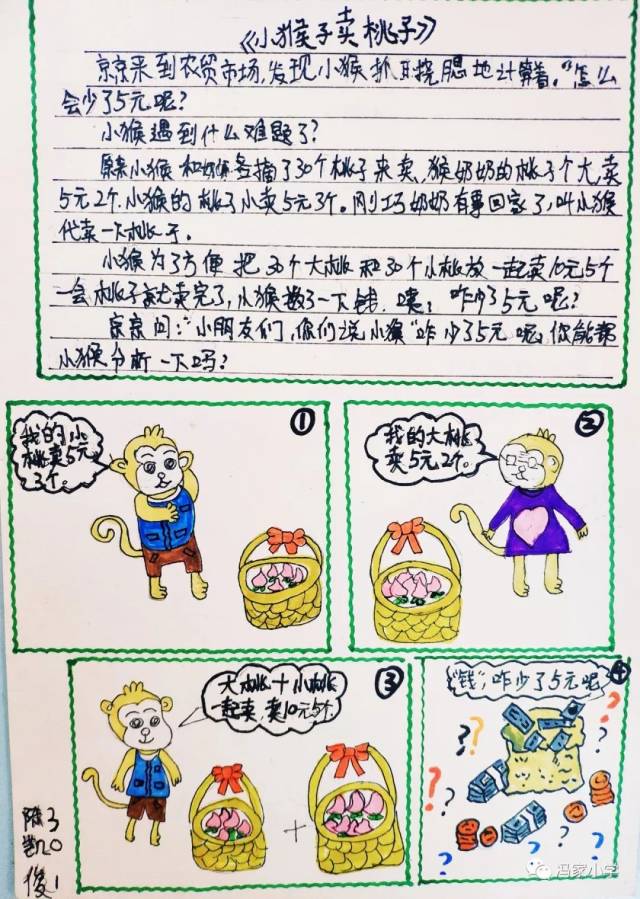 《小猴子卖桃子》
京京来到农贸市场,发现小猴抓耳挠腮地计算着,"怎么
会少了5元呢?
小猴遇到什么难题了?
原来小猴和奶奶各摘了30个桃子来卖,猴奶奶的桃子个大,卖
5元2个.小猴的桃子小卖5元3个。刚巧奶奶有事回家了,叫小猴
代卖一下桃子。
小猴为了方便把30个大桃和30个小桃放一起卖10元5个
一会桃子就卖完了,小猴数了一下钱.噗!咋少了5元呢?
京京问:"小朋友们,你们说小猴"咋少了5元呢,你能帮
小猴分析一下吗?
①
我的小
桃卖5元
3个。
②
我的大桃
卖5元2个。
③
大桃+小桃
一起卖,卖10元5个
+
④
"钱",咋少了5元呢
3
0
俊1
冯家小学